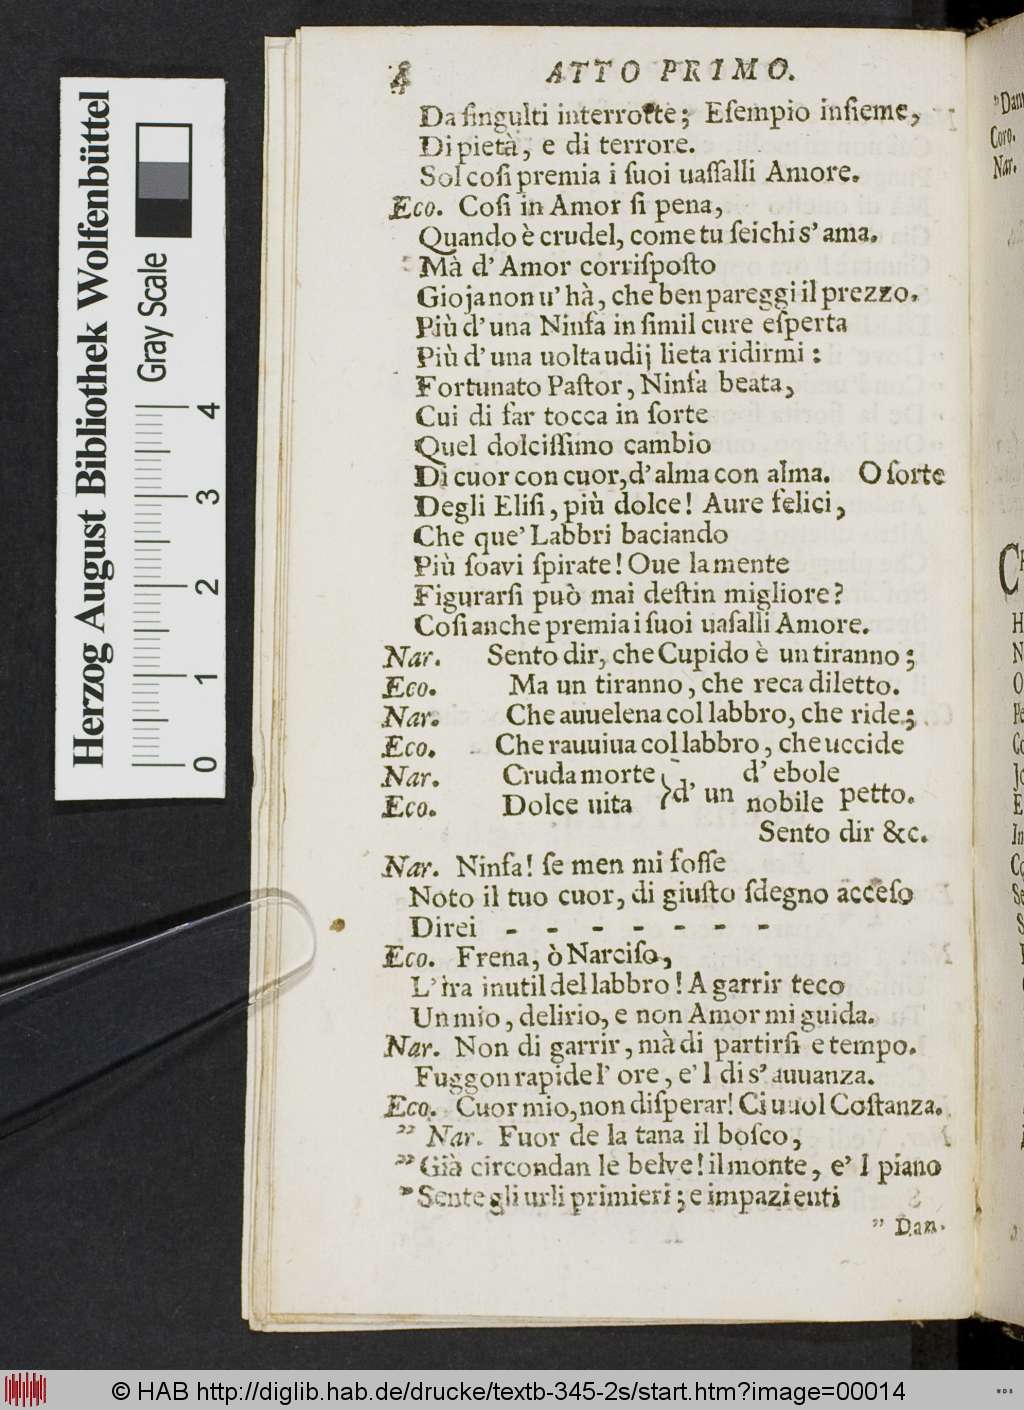 4 ATTO PRIMO.
Da ſingulti interrotte; Eſempio inſieme,
Di pietà, e di terrore.
Sol coſi premia i ſuoi uaſſalli Amore.
Eco. Coſi in Amor ſi pena,
Quando è crudel, come tu ſei chi s'ama.
Mà d'Amor corriſpoſto
Gioja non u'hà, che ben pareggi il prezzo.
Più d'una Ninfa in ſimil cure eſperta
Più d'una uolta udij lieta ridirmi:
Fortunato Paſtor, Ninfa beata,
Cui di far tocca in ſorte
Quel dolciſſimo cambio
Di cuor con cuor, d'alma con alma. O ſorte
Degli Eliſi, più dolce! Aure felici,
Che que' Labbri baciando
Più ſoavi ſpirate! Oue la mente
Figurarſi può mai deſtin migliore?
Coſi anche premia i ſuoi uaſalli Amore.
Nar. Sento dir, che Cupido è un tiranno;
Eco. Ma un tiranno, che reca diletto.
Nar. Che auuelena col labbro, che ride;
Eco. Che rauuiua col labbro, che uccide
Nar. Cruda morte } d'un d'ebole petto.
Eco. Dolce uita } d'un nobile petto.
Sento dir &c.
Nar. Ninfa! ſe men mi foſſe
Noto il tuo cuor, di giuſto ſdegno acceſo
Direi - - - - - - -
Eco. Frena, ò Narciſo,
L'ira inutil del labbro! A garrir teco
Un mio, delirio, e non Amor mi guida.
Nar. Non di garrir, mà di partirſi e tempo.
Fuggon rapide l'ore, e'l di s'auuanza.
Eco. Cuor mio, non diſperar! Ci uuol Coſtanza.
" Nar. Fuor de la tana il boſco,
" Già circondan le belve! il monte, e'l piano
" Sente gli urli primieri; e impazienti
" Dan-
"Dan
Coro.
Nar.
Herzog August Bibliothek Wolfenbüttel
Gray Scale
0 1 2 3 4
© HAB http://diglib.hab.de/drucke/textb-345-2s/start.htm?image=00014